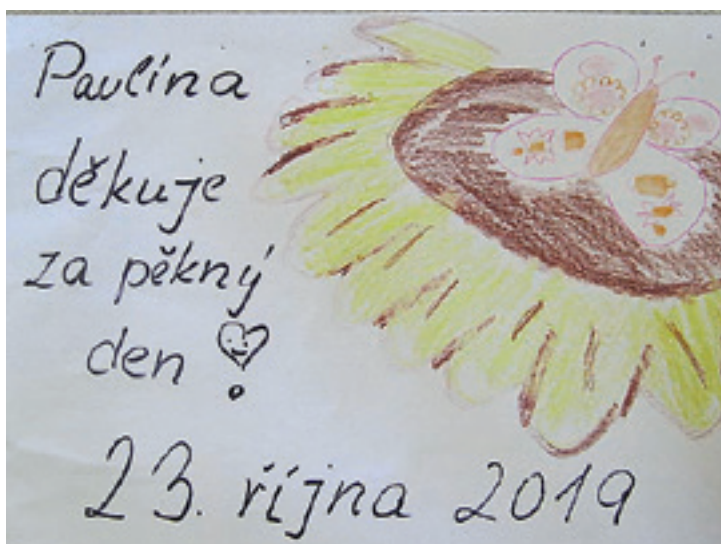 Pavlína
děkuje
za pěkný
den!
23. října 2019